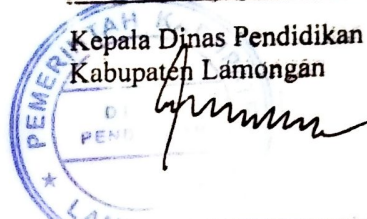 Kepala Dinas Pendidikan
Kabupaten Lamongan
PEMERINTAH K
D
PEN
LAM